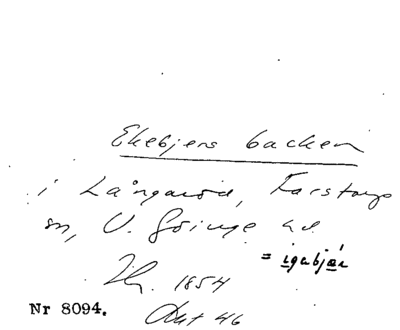 Ekebjers backen
i Långaröd, Farstorps
sn, V. Göinge hd.
= igabjär
Nr 8094.
1854
46